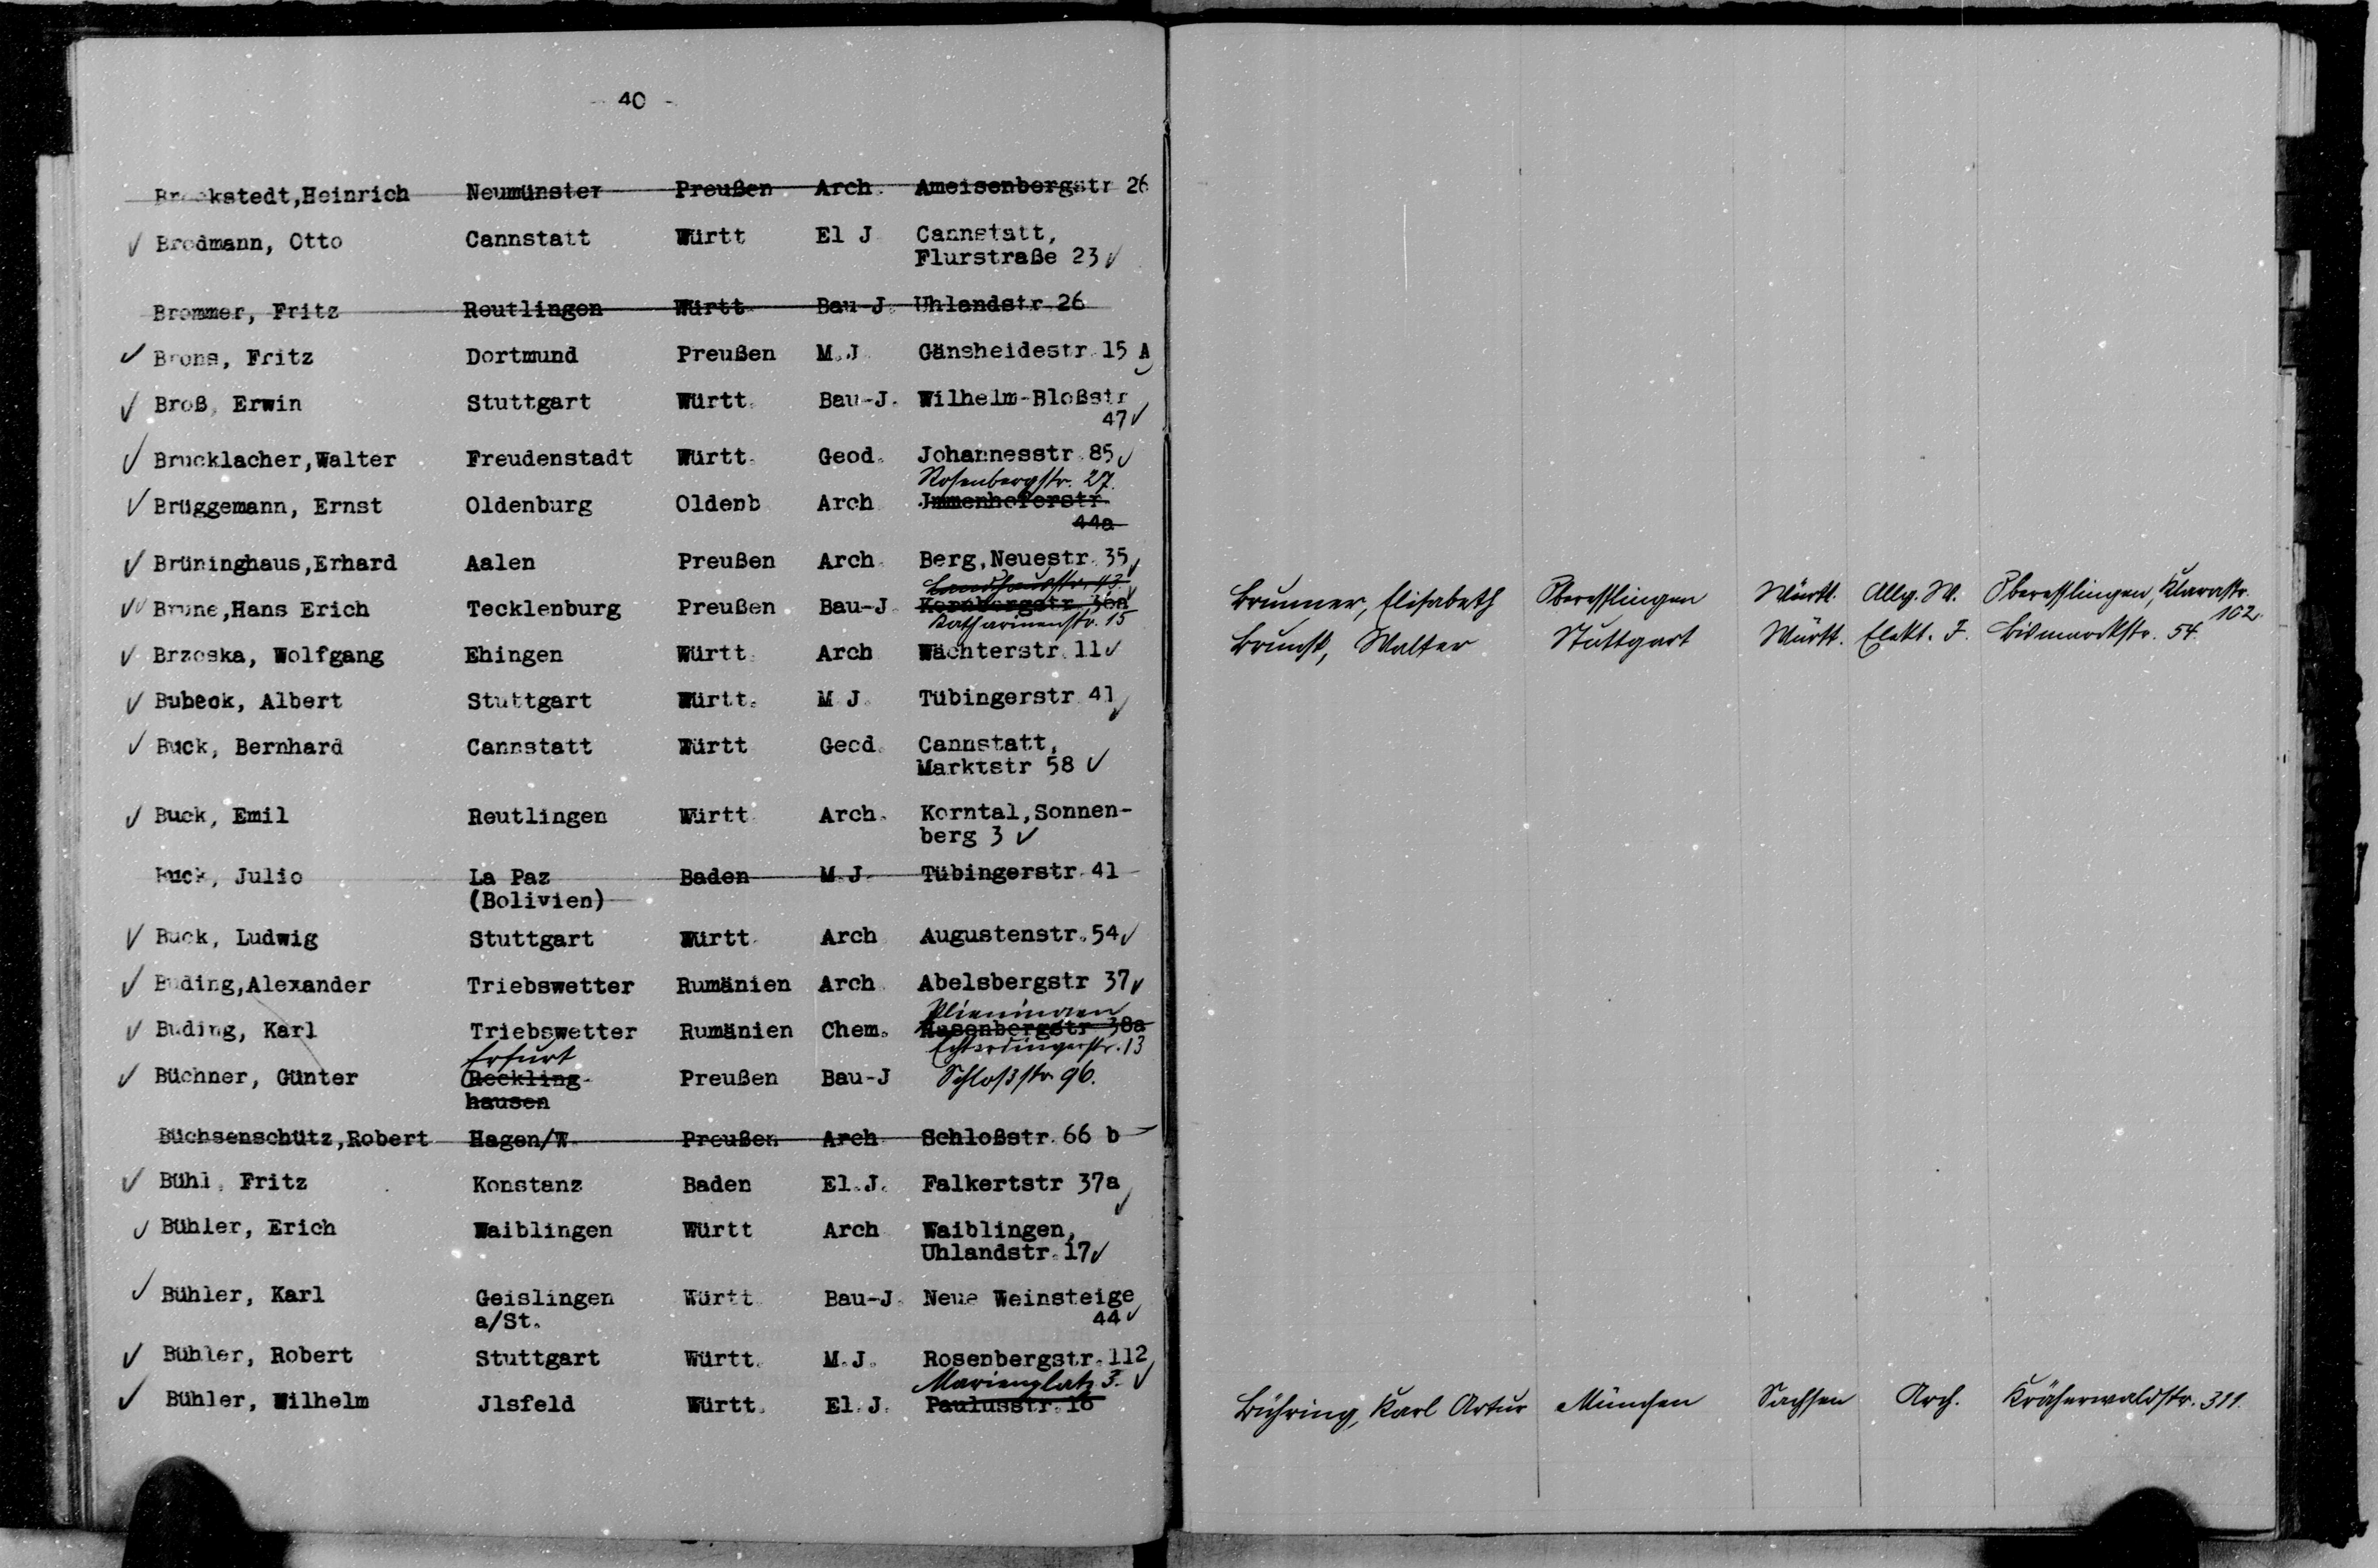 - 40 -
Brockstedt,Heinrich Neumünster Preußen Arch. Ameisenbergstr 26
Brodmann, Otto Cannstatt Württ El J Cannstatt,
Flurstraße 23
Brommer, Fritz Reutlingen Württ Bau-J. Uhlandstr.26
Brons, Fritz Dortmund Preußen M.J. Gänsheidestr.15 A
Broß, Erwin Stuttgart Württ. Bau-J. Wilhelm-Bloßstr
47
Brucklacher,Walter Freudenstadt Württ. Geod. Johannesstr.85
Rosenbergstr. 27.
Brüggemann, Ernst Oldenburg Oldenb Arch Jmmenhoferstr.
44a
Brüninghaus,Erhard Aalen Preußen Arch. Berg,Neuestr.35
Landhausstr. 43
Brune,Hans Erich Tecklenburg Preußen Bau-J. Kornbergstr.36a
Katharinenstr. 15
Brzoska, Wolfgang Ehingen Württ. Arch Wächterstr.11
Bubeck, Albert Stuttgart Württ. M J. Tübingerstr 41
Buck, Bernhard Cannstatt Württ Geod. Cannstatt,
Marktstr 58
Buck, Emil Reutlingen Württ. Arch. Korntal,Sonnen-
berg 3
Buck, Julio La Paz Baden M.J. Tübingerstr.41
(Bolivien)
Buck, Ludwig Stuttgart Württ. Arch Augustenstr.54
Buding,Alexander Triebswetter Rumänien Arch. Abelsbergstr 37
Plieningen
Buding, Karl Triebswetter Rumänien Chem. Hasenbergstr 38a
Erfurt Echterdingerstr. 13
Büchner, Günter Reckling- Preußen Bau-J Schloßstr. 96.
hausen
Büchsenschütz,Robert Hagen/W. Preußen Arch Schloßstr.66 b
Bühl, Fritz Konstanz Baden El.J. Falkertstr 37a
Bühler, Erich Waiblingen Württ Arch Waiblingen,
Uhlandstr.17
Bühler, Karl Geislingen Württ. Bau-J. Neue Weinsteige
a/St. 44
Bühler, Robert Stuttgart Württ. M.J. Rosenbergstr.112
Marienplatz 3.
Bühler, Wilhelm Jlsfeld Württ. El.J. Paulusstr.16
Brunner, Elisabeth Oberesslingen Württ. Allg. W. Oberesslingen, Klarastr.
102.
Brunst, Walter Stuttgart Württ. Elekt. J. Bismarckstr. 54.
Bühring, Karl Artur München Sachsen Arch. Kräherwaldstr. 311.